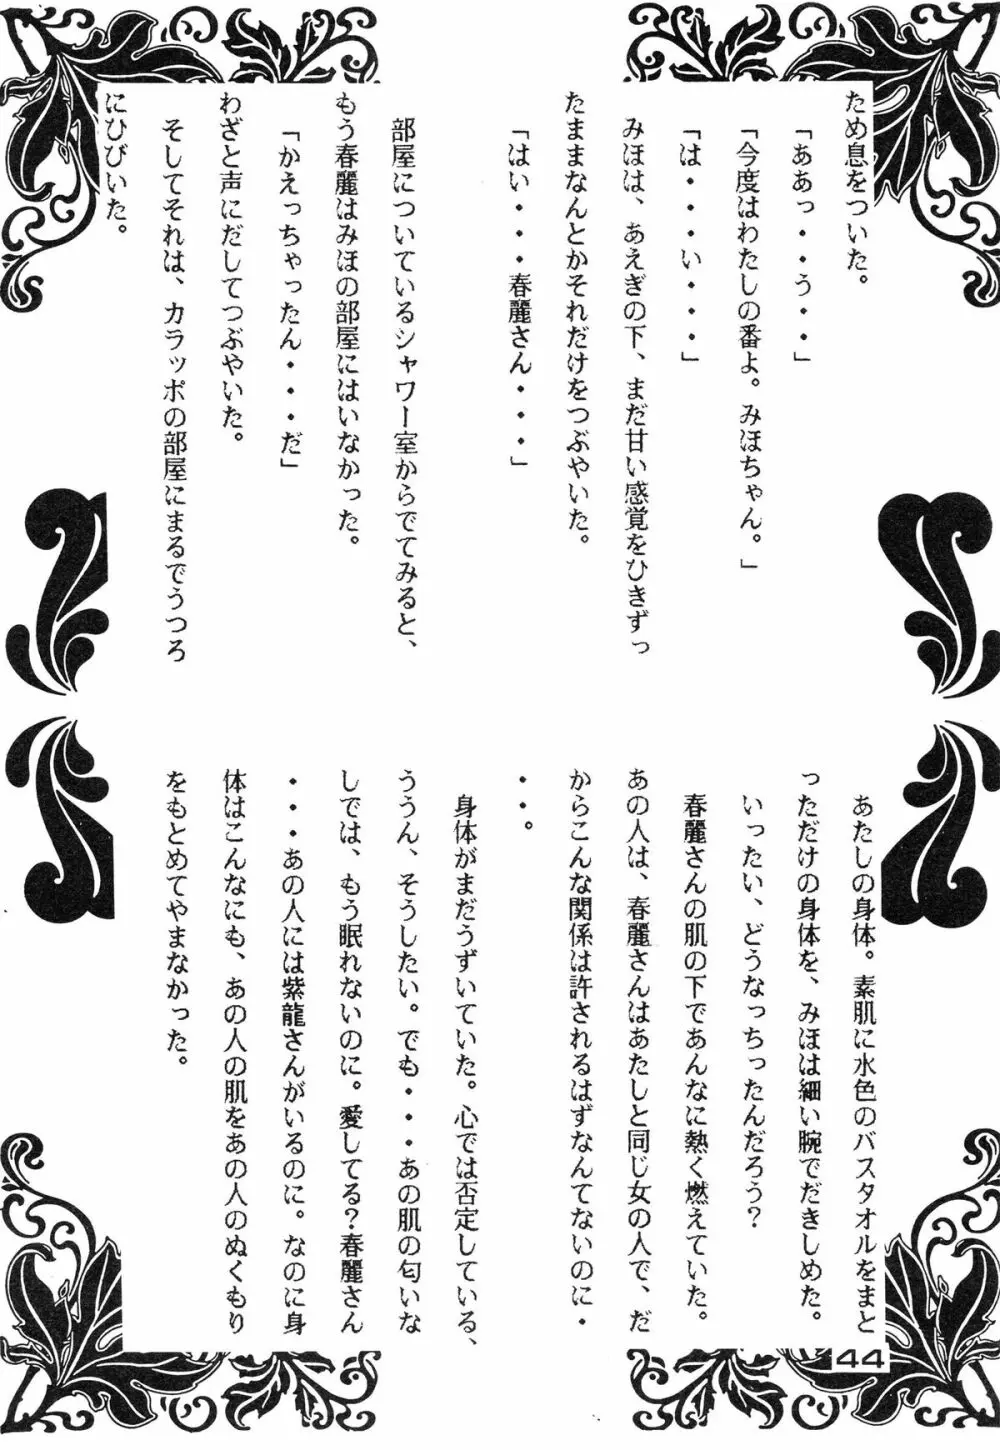 ため息をついた。
「ああっ・・・う・・・」
「今度はわたしの番よ。みほちゃん。」
「は・・・い・・・・」
みほは、あえぎの下、まだ甘い感覚をひきずっ
たままなんとかそれだけをつぶやいた。
「はい・・・・春麗さん・・・・」
部屋についているシャワー室からでてみると、
もう春麗はみほの部屋にはいなかった。
「かえっちゃったん・・・・だ」
わざと声にだしてつぶやいた。
そしてそれは、カラッポの部屋にまるでうつろ
にひびいた。
あたしの身体。素肌に水色のバスタオルをまと
っただけの身体を、みほは細い腕でだきしめた。
いったい、どうなっちったんだろう？
春麗さんの肌の下であんなに熱く燃えていた。
あの人は、春麗さんはあたしと同じ女の人で、だ
からこんな関係は許されるはずなんてないのに・
・・。
身体がまだうずいていた。心では否定している、
ううん、そうしたい。でも・・・あの肌の匂いな
しでは、もう眠れないのに。愛してる？春麗さん
・・・あの人には紫龍さんがいるのに。なのに身
体はこんなにも、あの人の肌をあの人のぬくもり
をもとめてやまなかった。
44